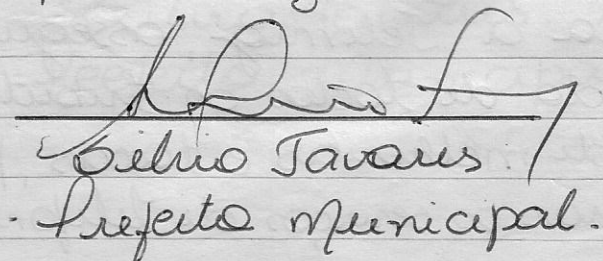 Silvio Tavares.
Prefeito Municipal.